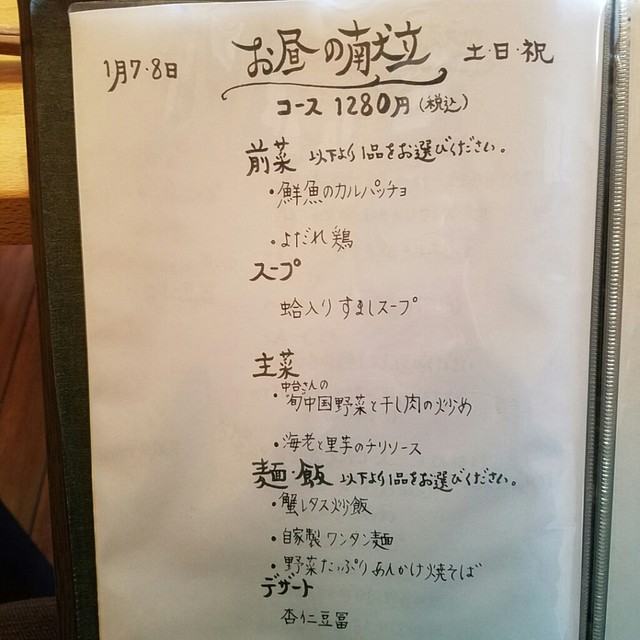 お昼の献立
1月7・8日
土・日・祝
コース 1280円(税込)
前菜 以下より1品をお選びください。
・鮮魚のカルパッチョ
・よだれ鶏
スープ
蛤入りすましスープ
主菜
中台さんの
・"旬"中国野菜と干し肉の炒め
・海老と里芋のチリソース
麺・飯 以下より1品をお選びください。
・蟹レタス炒飯
・自家製ワンタン麺
・野菜たっぷりあんかけ焼そば
デザート
杏仁豆冨